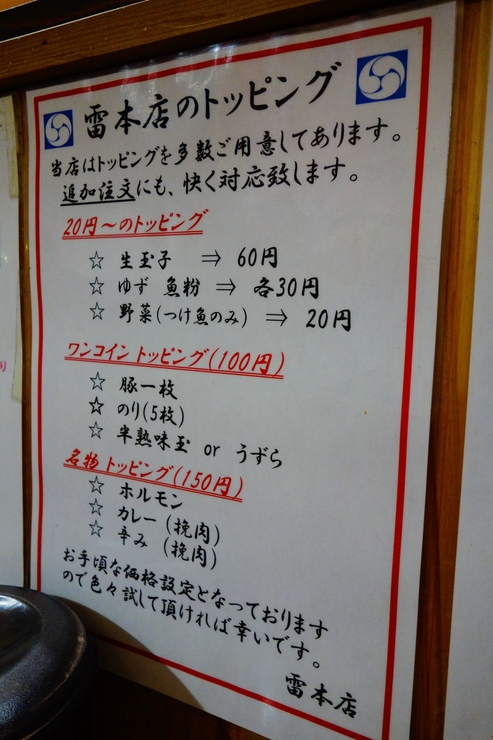 雷本店のトッピング
当店はトッピングを多数ご用意してあります。
追加注文にも、快く対応致します。
20円～のトッピング
☆ 生玉子 ⇒ 60円
☆ ゆず 魚粉 ⇒ 各30円
☆ 野菜(つけ魚のみ) ⇒ 20円
ワンコイン トッピング(100円)
☆ 豚一枚
☆ のり(5枚)
☆ 半熟味玉 or うずら
名物 トッピング(150円)
☆ ホルモン
☆ カレー (挽肉)
☆ 辛み (挽肉)
お手頃な価格設定となっております
ので色々試して頂ければ幸いです。
雷本店